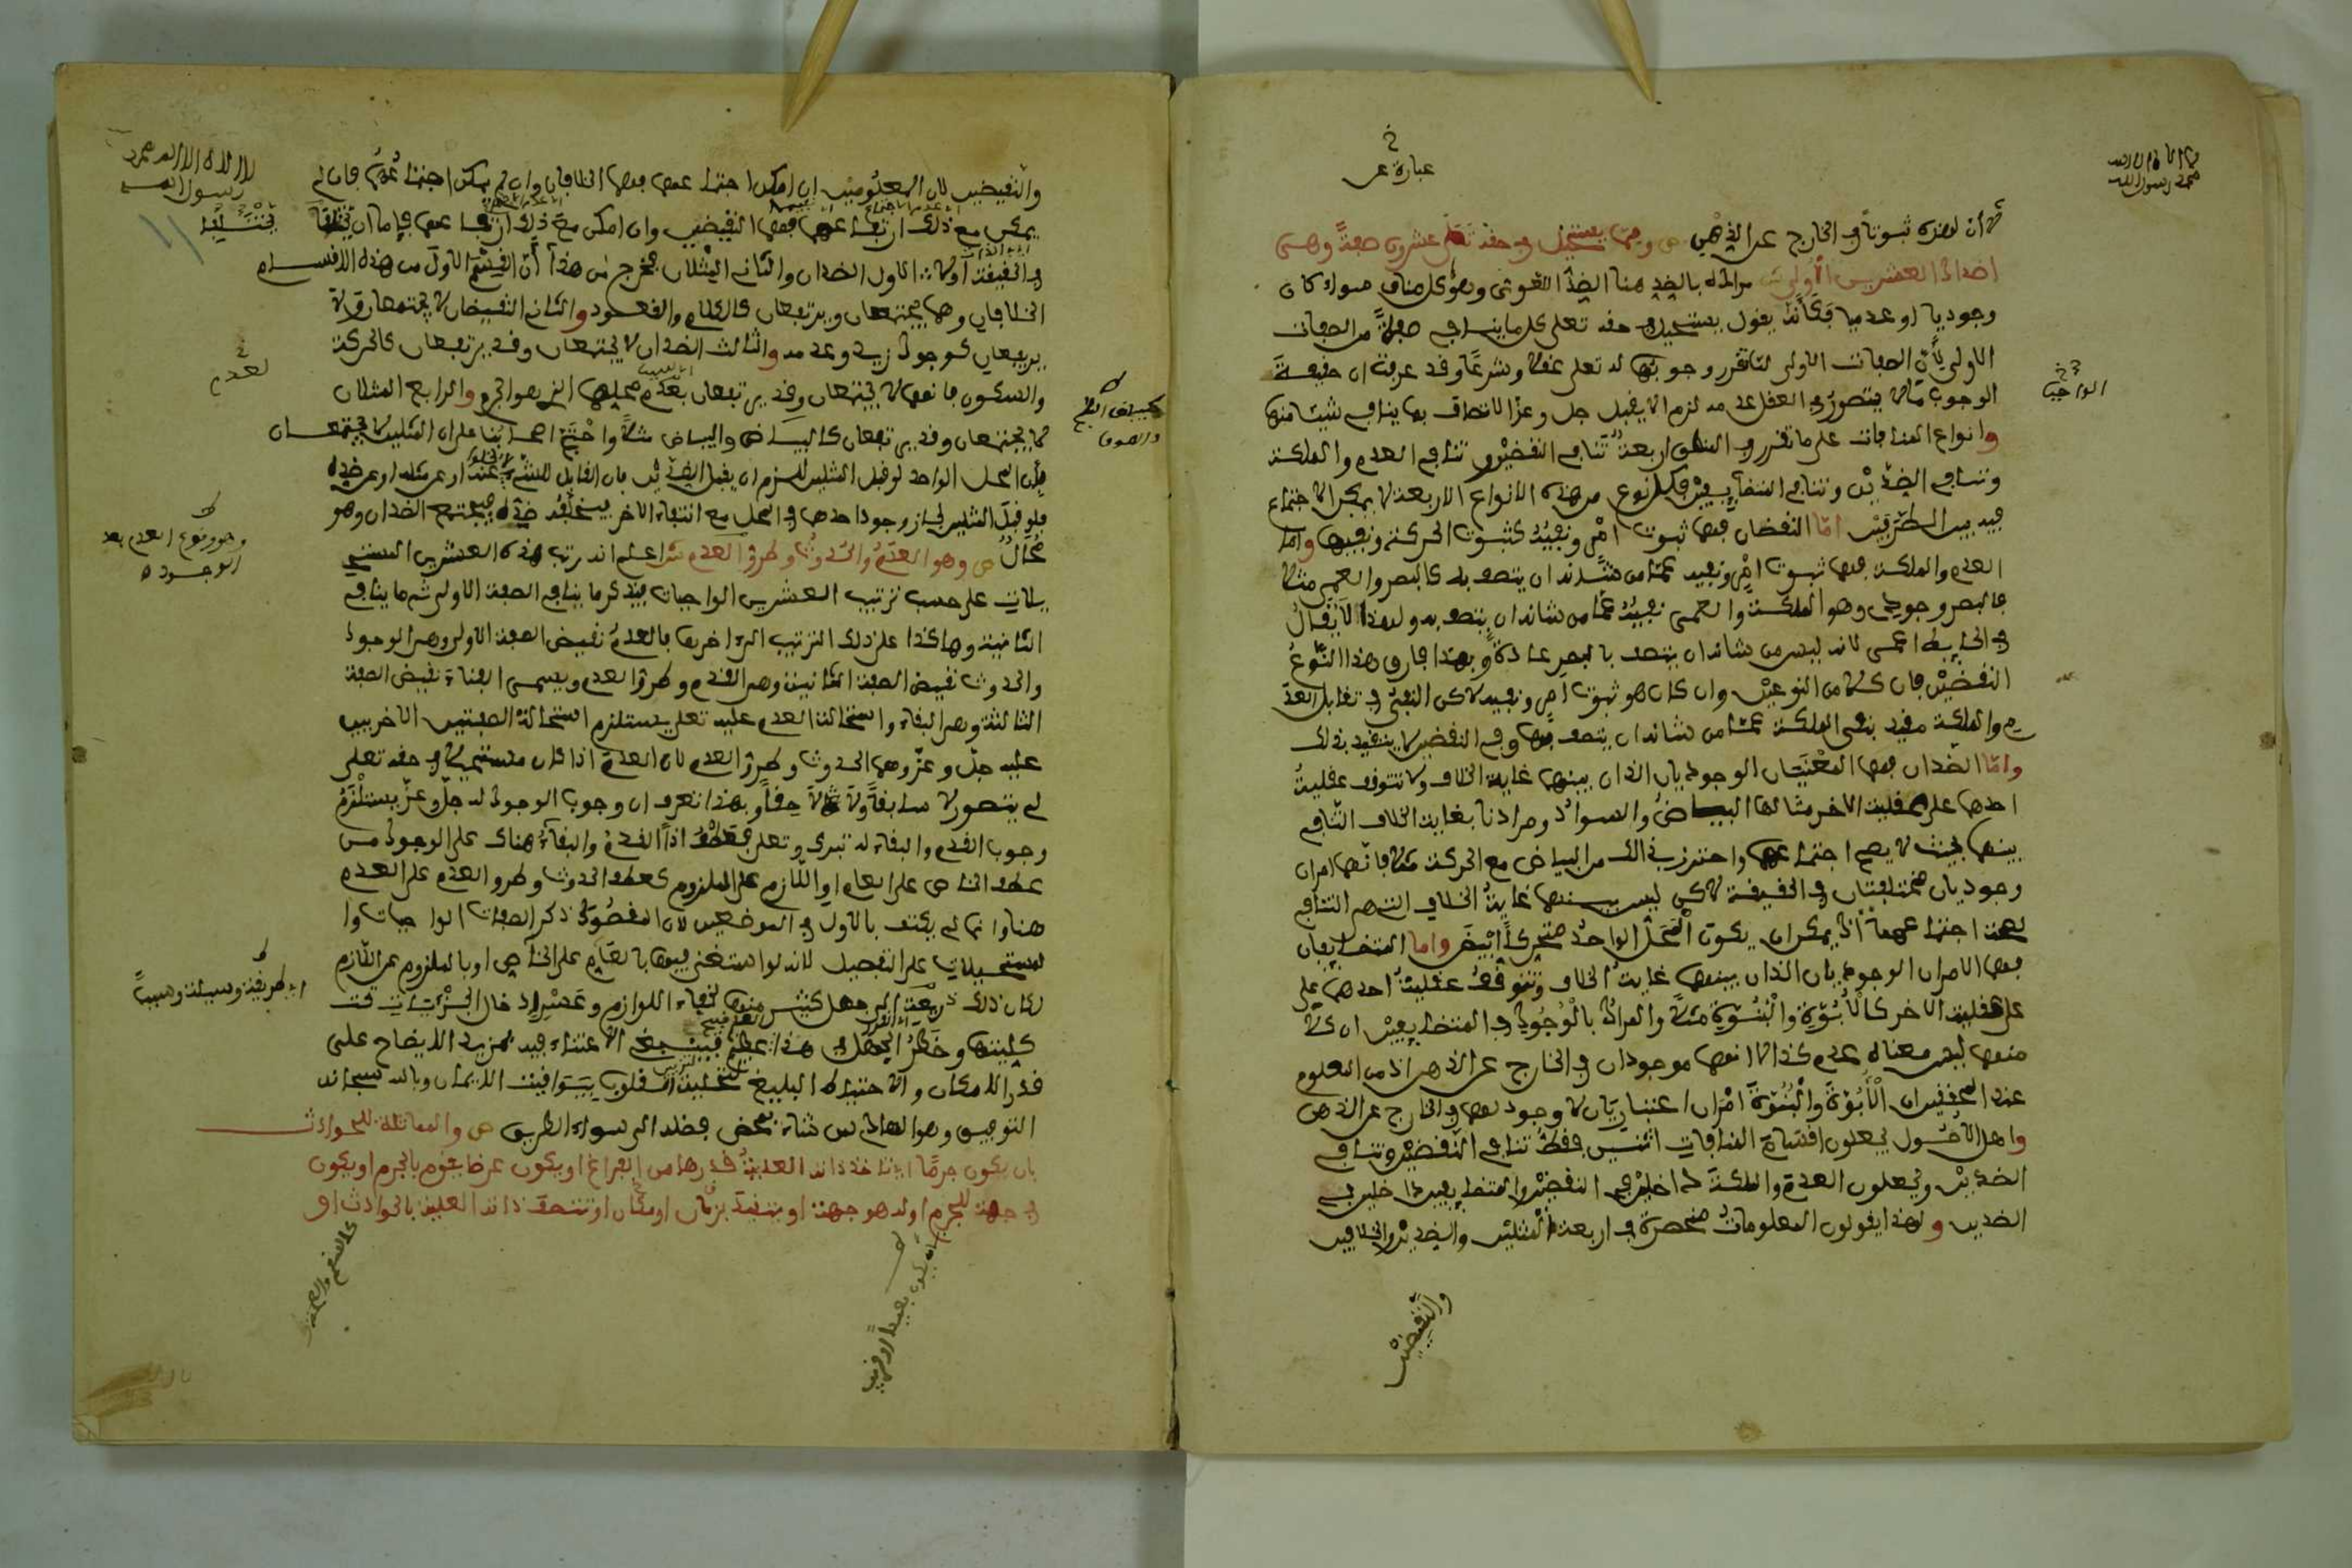 لا اله الا الله
محمد رسول الله
عبارة عن
لا أن لهذه ثبوتا في الخارج عن الذهن ص ومما يستحيل في حقه تعلى عشرون صفة وهي
اضداد العشرين الأولى ش مراده بالضد هنا الضد اللغوي وهو كل مناف سواء كان
وجوديا او عدميا فكأنه يقول يستحيل في حقه تعلى كل ما ينافي صفة من الصفات
الاولى لأن الصفات الاولى لما تقرر وجوبها له تعلى عقلا وشرعا وقد عرفت ان حقيقة
الواجب
الوجوب ما لا يتصور في العقل عدمه لزم الا يقبل جل وعز الاتصاف بما ينافي شيئا منها
وانواع المنافات على ما تقرر في المنطق اربعة تنافي النقيضين وتنافي العدم والملكة
وتنافي الضدين وتنافي المتضايفين فكل نوع من هذه الانواع الاربعة لا يمكن الاجتماع
فيه بين الطرفين اما النقيضان فهما ثبوت امر ونفيه كثبوت الحركة ونفيها واما
العدم والملكة فهما ثبوت امر ونفيه عما من شأنه ان يتصف به كالبصر والعمى مثلا
فالبصر وجودي وهو الملكة والعمى نفيه عما من شانه ان يتصف به ولهذا لا يقال
في الحايط اعمى لانه ليس من شانه ان يتصف بالبصر عادة وبهذا فارق هذا النوع
النقيضين فان كلا من النوعين وان كان هو ثبوت امر ونفيه لاكن النفي في تقابل العد
م والملكة مقيد بنفي الملكة عما من شانه ان يتصف بها وفي النقيضين لا يتقيد بذلك
واما الضدان فهما المعنيان الوجوديان اللذان بينهما غاية الخلاف ولا تتوقف عقلية
احدهما على عقلية الاخر مثالهما البياض والسواد ومرادنا بغاية الخلاف التنافي
بينهما بحيث لا يصح اجتماعهما واحترز بذلك من البياض مع الحركة مثلا فانهما امران
وجوديان مختلفان في الحقيقة لاكن ليس بينهما غاية الخلاف التي هي التنافي
لصحة اجتماعهما اذ يمكن ان يكون المحل الواحد متحركا ابيض واما المتضايفان
فهما الامران الوجوديان اللذان بينهما غاية الخلاف وتتوقف عقلية احدهما على
على عقلية الاخر كالأبوة والبنوة مثلا والمراد بالوجود في المتضايفين ان كلا
منهما ليس معناه عدم كذا لا انهما موجودان في الخارج عن الذهن اذ من المعلوم
عند المحققين ان الأبوة والبنوة امران اعتباريان لا وجود لهما في الخارج عن الذهن
واهل الاصول يجعلون اقسام المنافات اثنين فقط تنافي النقيضين وتنافي
الضدين ويجعلون العدم والملكة داخلين في النقيضين والمتضايفين داخلين في
الضدين ولهذا يقولون المعلومات منحصرة في اربعة المثلين والضدين والخلافين
والنقيضين
لا اله الا الله محمد
رسول الله
والنقيضين لان المعلومين ان امكن اجتماعهما فهما الخلافان وان لم يمكن اجتماعهما فان لم
يمكن مع ذلك ارتفاعهما فهما النقيضين وان امكن مع ذلك ارتفاعهما فاما ان يختلفا
في الحقيقة أولا الاول الضدان والثاني المثلان فخرج من هذا أن القسم الاول من هذه الاقسام
الخلافان وهما يجتمعان ويرتفعان كالكلام والقعود والثاني النقيضان لا يجتمعان ولا
يرتفعان كوجود زيد وعدمه والثالث الضدان لا يجتمعان وقد يرتفعان كالحركة
لعدم
والسكون فانهما لا يجتمعان وقد يرتفعان بعدم محلهما الذي هو الجرم والرابع المثلان
لا يجتمعان وقد يرتفعان كالبياض والبياض مثلا واحتج اصحابنا على ان المثلين لا يجتمعان
بأن المحل الواحد لو قبل المثلين للزم ان يقبل الضدين فان القابل للشيء لا يخلو عنه او عن مثله او عن ضده
فلو قبل المثلين لجاز وجود احدهما في المحل مع انتفاء الاخر فيخلفه ضده فيجتمع الضدان وهو
محال ص وهو العدم والحدوث وطرو العدم ش اعلم انه رتب هذه العشرين المستحي
وهو وقوع العدم بعد
الوجود
يلات على حسب ترتيب العشرين الواجبات فيذكر ما ينافي الصفة الاولى ثم ما ينافي
الثانية وهاكذا على ذلك الترتيب الى اخرها فالعدم نقيض الصفة الاولى وهي الوجود
والحدوث نقيض الصفة الثانية وهي القدم وطرو العدم ويسمى الفناء نقيض الصفة
الثالثة وهي البقاء واستحالة العدم عليه تعلى يستلزم استحالة الصفتين الاخريين
عليه جل وعز وهما الحدوث وطرو العدم لان العدم اذا كان مستحيلا في حقه تعلى
لم يتصور لا سابقا ولا لاحقا وبهذا تعرف ان وجوب الوجود له جل وعز يستلزم
وجوب القدم والبقاء له تبرك وتعلى فعطف اذا القدم والبقاء هناك على الوجود من
عطف الخاص على العام او اللازم على الملزوم كعطف الحدوث وطرو العدم على العدم
هنا وانما لم يكتف بالاول في الموضعين لان المقصود ذكر الصفات الواجبات وا
لمستحيلات على التفصيل لانه لو استغنى فيها بالعام على الخاص او بالملزوم عن اللازم
اي طريقة وسيلة وسببا
لكان ذلك ذريعة الى جهل كثير منها لخفاء اللوازم وعسر ادخال الجزئيات تحت
كلياتها وخطر الجهل في هذا العلم عظيم فينبغي الاعتناء فيه بمزيد الايضاح على
قدر الامكان والاحتياط البليغ لتحلية القلوب بيواقيت الايمان وبالله سبحانه
التوفيق وهو الهادي من شاء بمحض فضله الى سواء الطريق ص والمماثلة للحوادث
بان يكون جرما اي تاخذ ذاته العلية قدرها من الفراغ او يكون عرضا يقوم بالجرم او يكون
في جهة للجرم او له هو جهة او يتقيد بزمان او مكان او تتصف ذاته العلية بالحوادث او